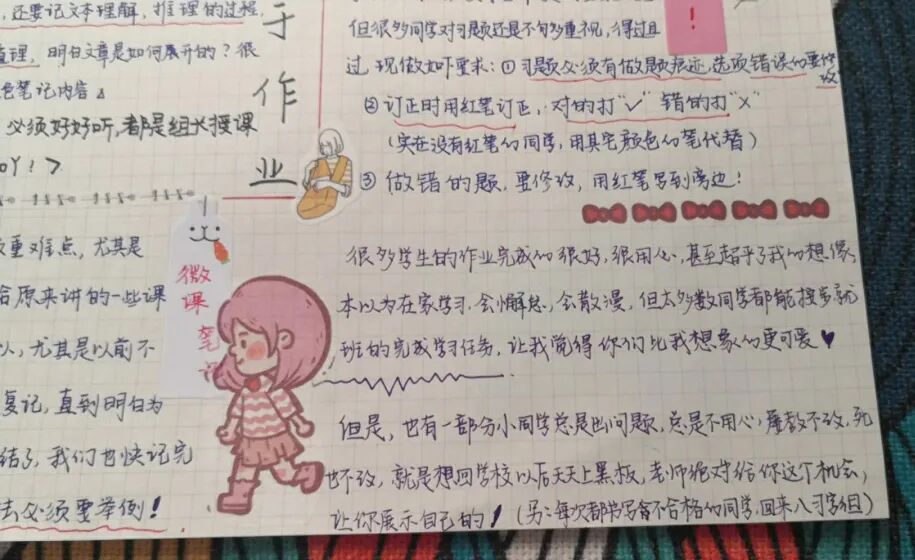 还要记文本理解，推理的过程，
直理，明白文章是如何展开的？很
色笔记内容
必须好好听，都是组长授课
重难点，尤其是
给原来讲的一些课
以，尤其是以前不
复记，直到明白为
结了，我们也快记完
去必须要举例！
于
作
业
微
课
笔
记
！
但很多同学对习题还是不够多重视，得过且
过，现做如下要求：①习题必须有做题痕迹，选项错误的要修
改
②订正时用红笔订正，对的打"√" 错的打"×"
（实在没有红笔的同学，用其它颜色的笔代替）
③ 做错的题，要修改，用红笔写到旁边！
很多学生的作业完成的很好，很用心，甚至超乎了我的想像，
本以为在家学习，会懈怠，会散漫，但大多数同学都能按步就
班的完成学习任务，让我觉得你们比我想象的更可爱♥
但是，也有一部分小同学总是出问题，总是不用心，屡教不改，死
也不改，就是想回学校以后天天上黑板，老师绝对给你这个机会，
让你展示自己的！（另：每次都书写不合格的同学，回来入习字组）